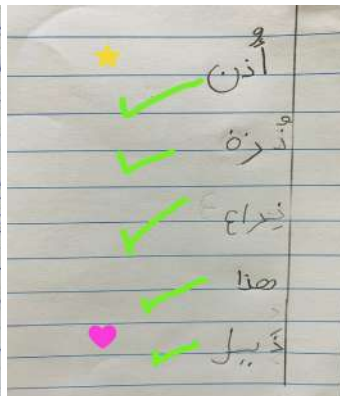 أُذن
ذُرة
ذِراع
هذا
ذَبيل